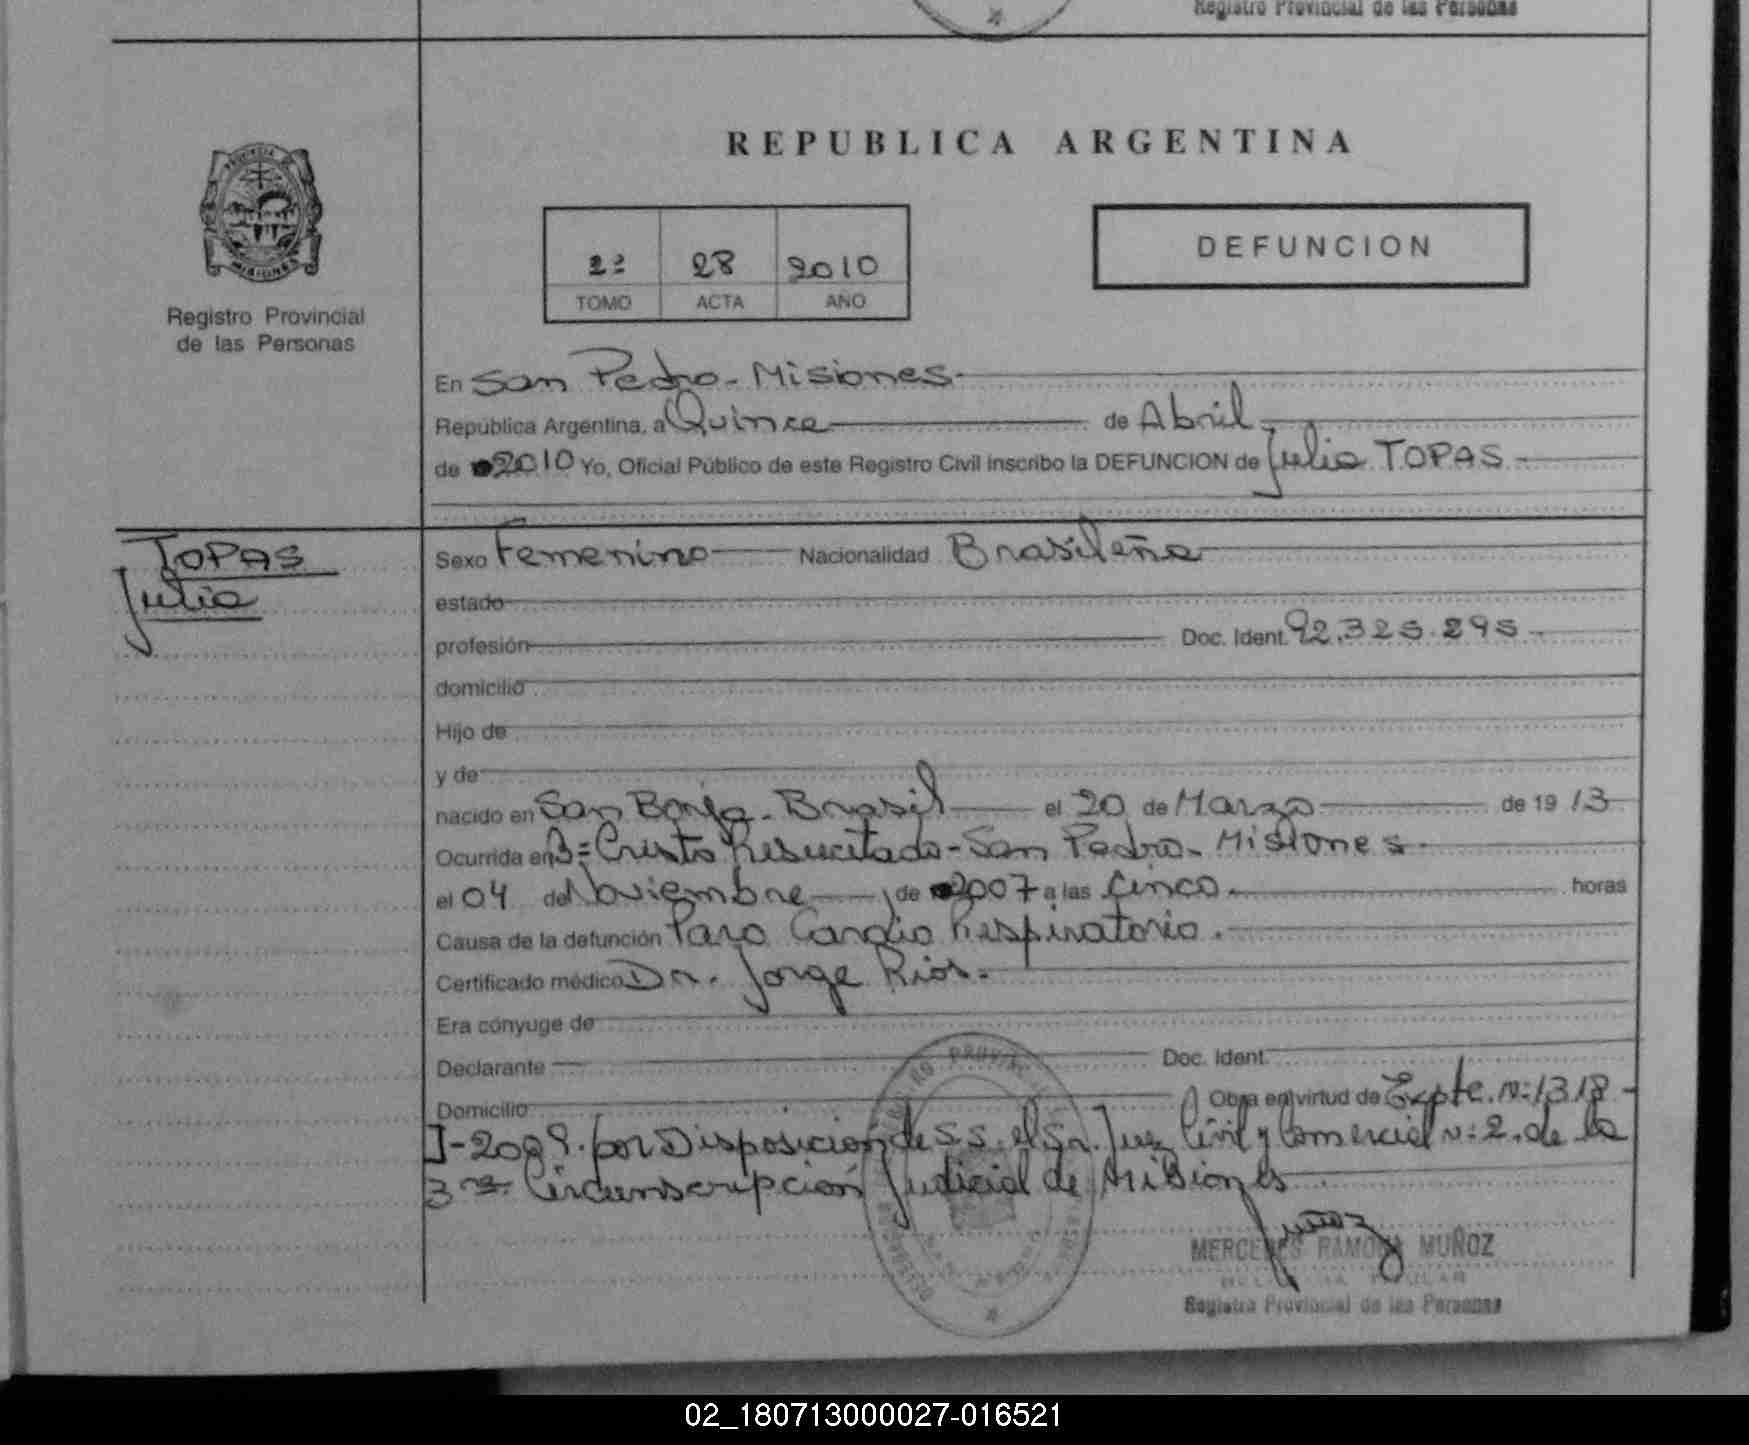 Registro Provincial de las Personas
REPUBLICA ARGENTINA
DEFUNCION
2º 28 2010
TOMO ACTA AÑO
PROVINCIA DE
MISIONES
Registro Provincial
de las Personas
En San Pedro - Misiones -
República Argentina, a Quince de Abril
de 2010 Yo, Oficial Público de este Registro Civil inscribo la DEFUNCION de Julia TOPAS -
TOPAS
Julia
Sexo Femenino Nacionalidad Brasileña
estado
profesión Doc. Ident. 92.325.295 -
domicilio
Hijo de
y de
nacido en San Borja - Brasil el 20 de Marzo de 19 13
Ocurrida en Bº Cristo Resucitado - San Pedro - Misiones
el 04 de Noviembre de 2007 a las Cinco horas
Causa de la defunción Paro Cardio Respiratorio.
Certificado médico Dr. Jorge Rios.
Era cónyuge de
Declarante Doc. Ident.
Domicilio Obra en virtud de Expte. nº 1318 -
J-2009. por Disposición de S.S. el Sr. Juez Civil y Comercial nº 2. de la
3ra. Circunscripción Judicial de Misiones
MERCEDES RAMONA MUÑOZ
Registro Provincial de las Personas
02_180713000027-016521